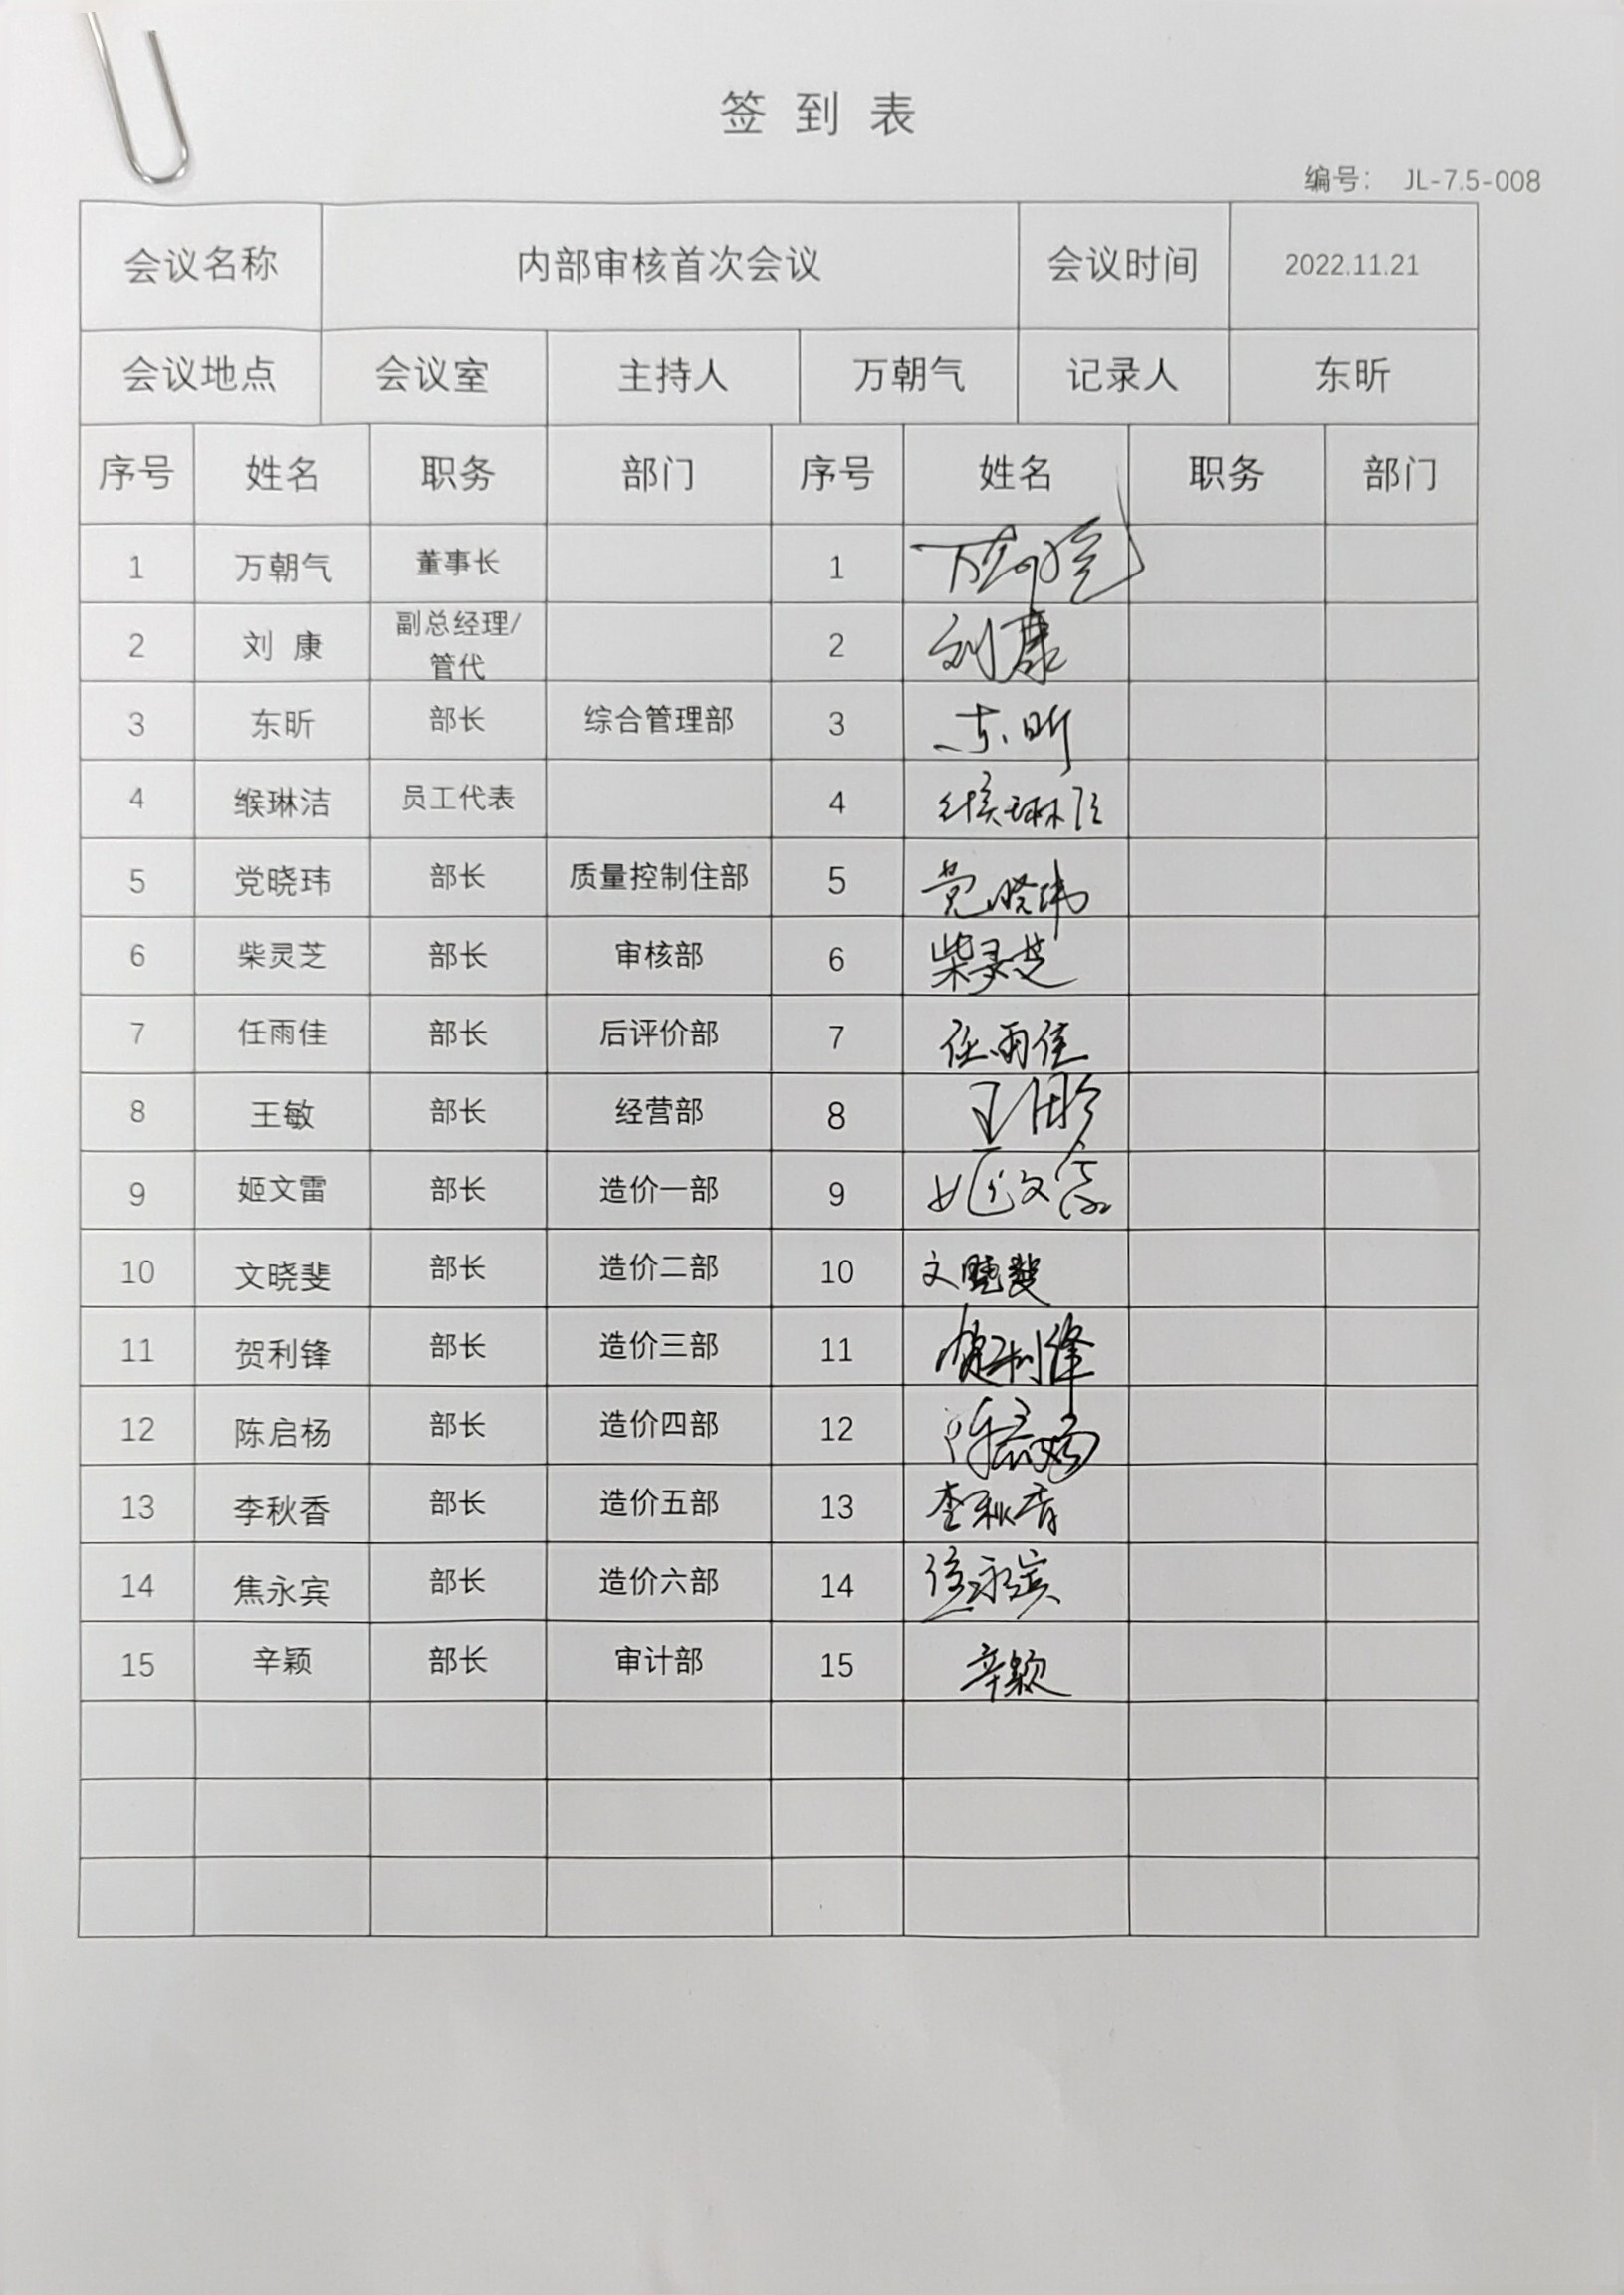 签到表
编号： JL-7.5-008
会议名称 内部审核首次会议 会议时间 2022.11.21
会议地点 会议室 主持人 万朝气 记录人 东昕
序号 姓名 职务 部门 序号 姓名 职务 部门
1 万朝气 董事长 1
2 刘 康 副总经理/管代 2 刘康
3 东昕 部长 综合管理部 3 东昕
4 缑琳洁 员工代表 4 缑琳洁
5 党晓玮 部长 质量控制住部 5 党晓玮
6 柴灵芝 部长 审核部 6 柴灵芝
7 任雨佳 部长 后评价部 7 任雨佳
8 王敏 部长 经营部 8
9 姬文雷 部长 造价一部 9 姬文雷
10 文晓斐 部长 造价二部 10 文晓斐
11 贺利锋 部长 造价三部 11 贺利锋
12 陈启杨 部长 造价四部 12 陈启杨
13 李秋香 部长 造价五部 13 李秋香
14 焦永宾 部长 造价六部 14 焦永宾
15 辛颖 部长 审计部 15 辛颖